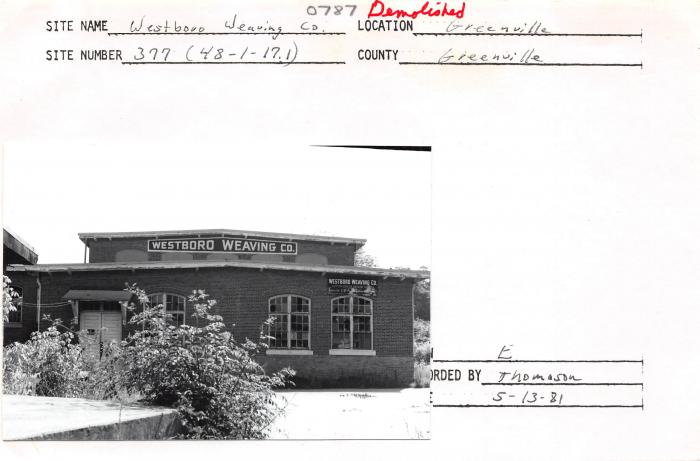 0787 Demolished
SITE NAME Westboro Weaving Co. LOCATION Greenville
SITE NUMBER 377 (48-1-17.1) COUNTY Greenville
WESTBORO WEAVING CO.
WESTBORO WEAVING CO.
E
ORDED BY Thomason
E 5-13-81